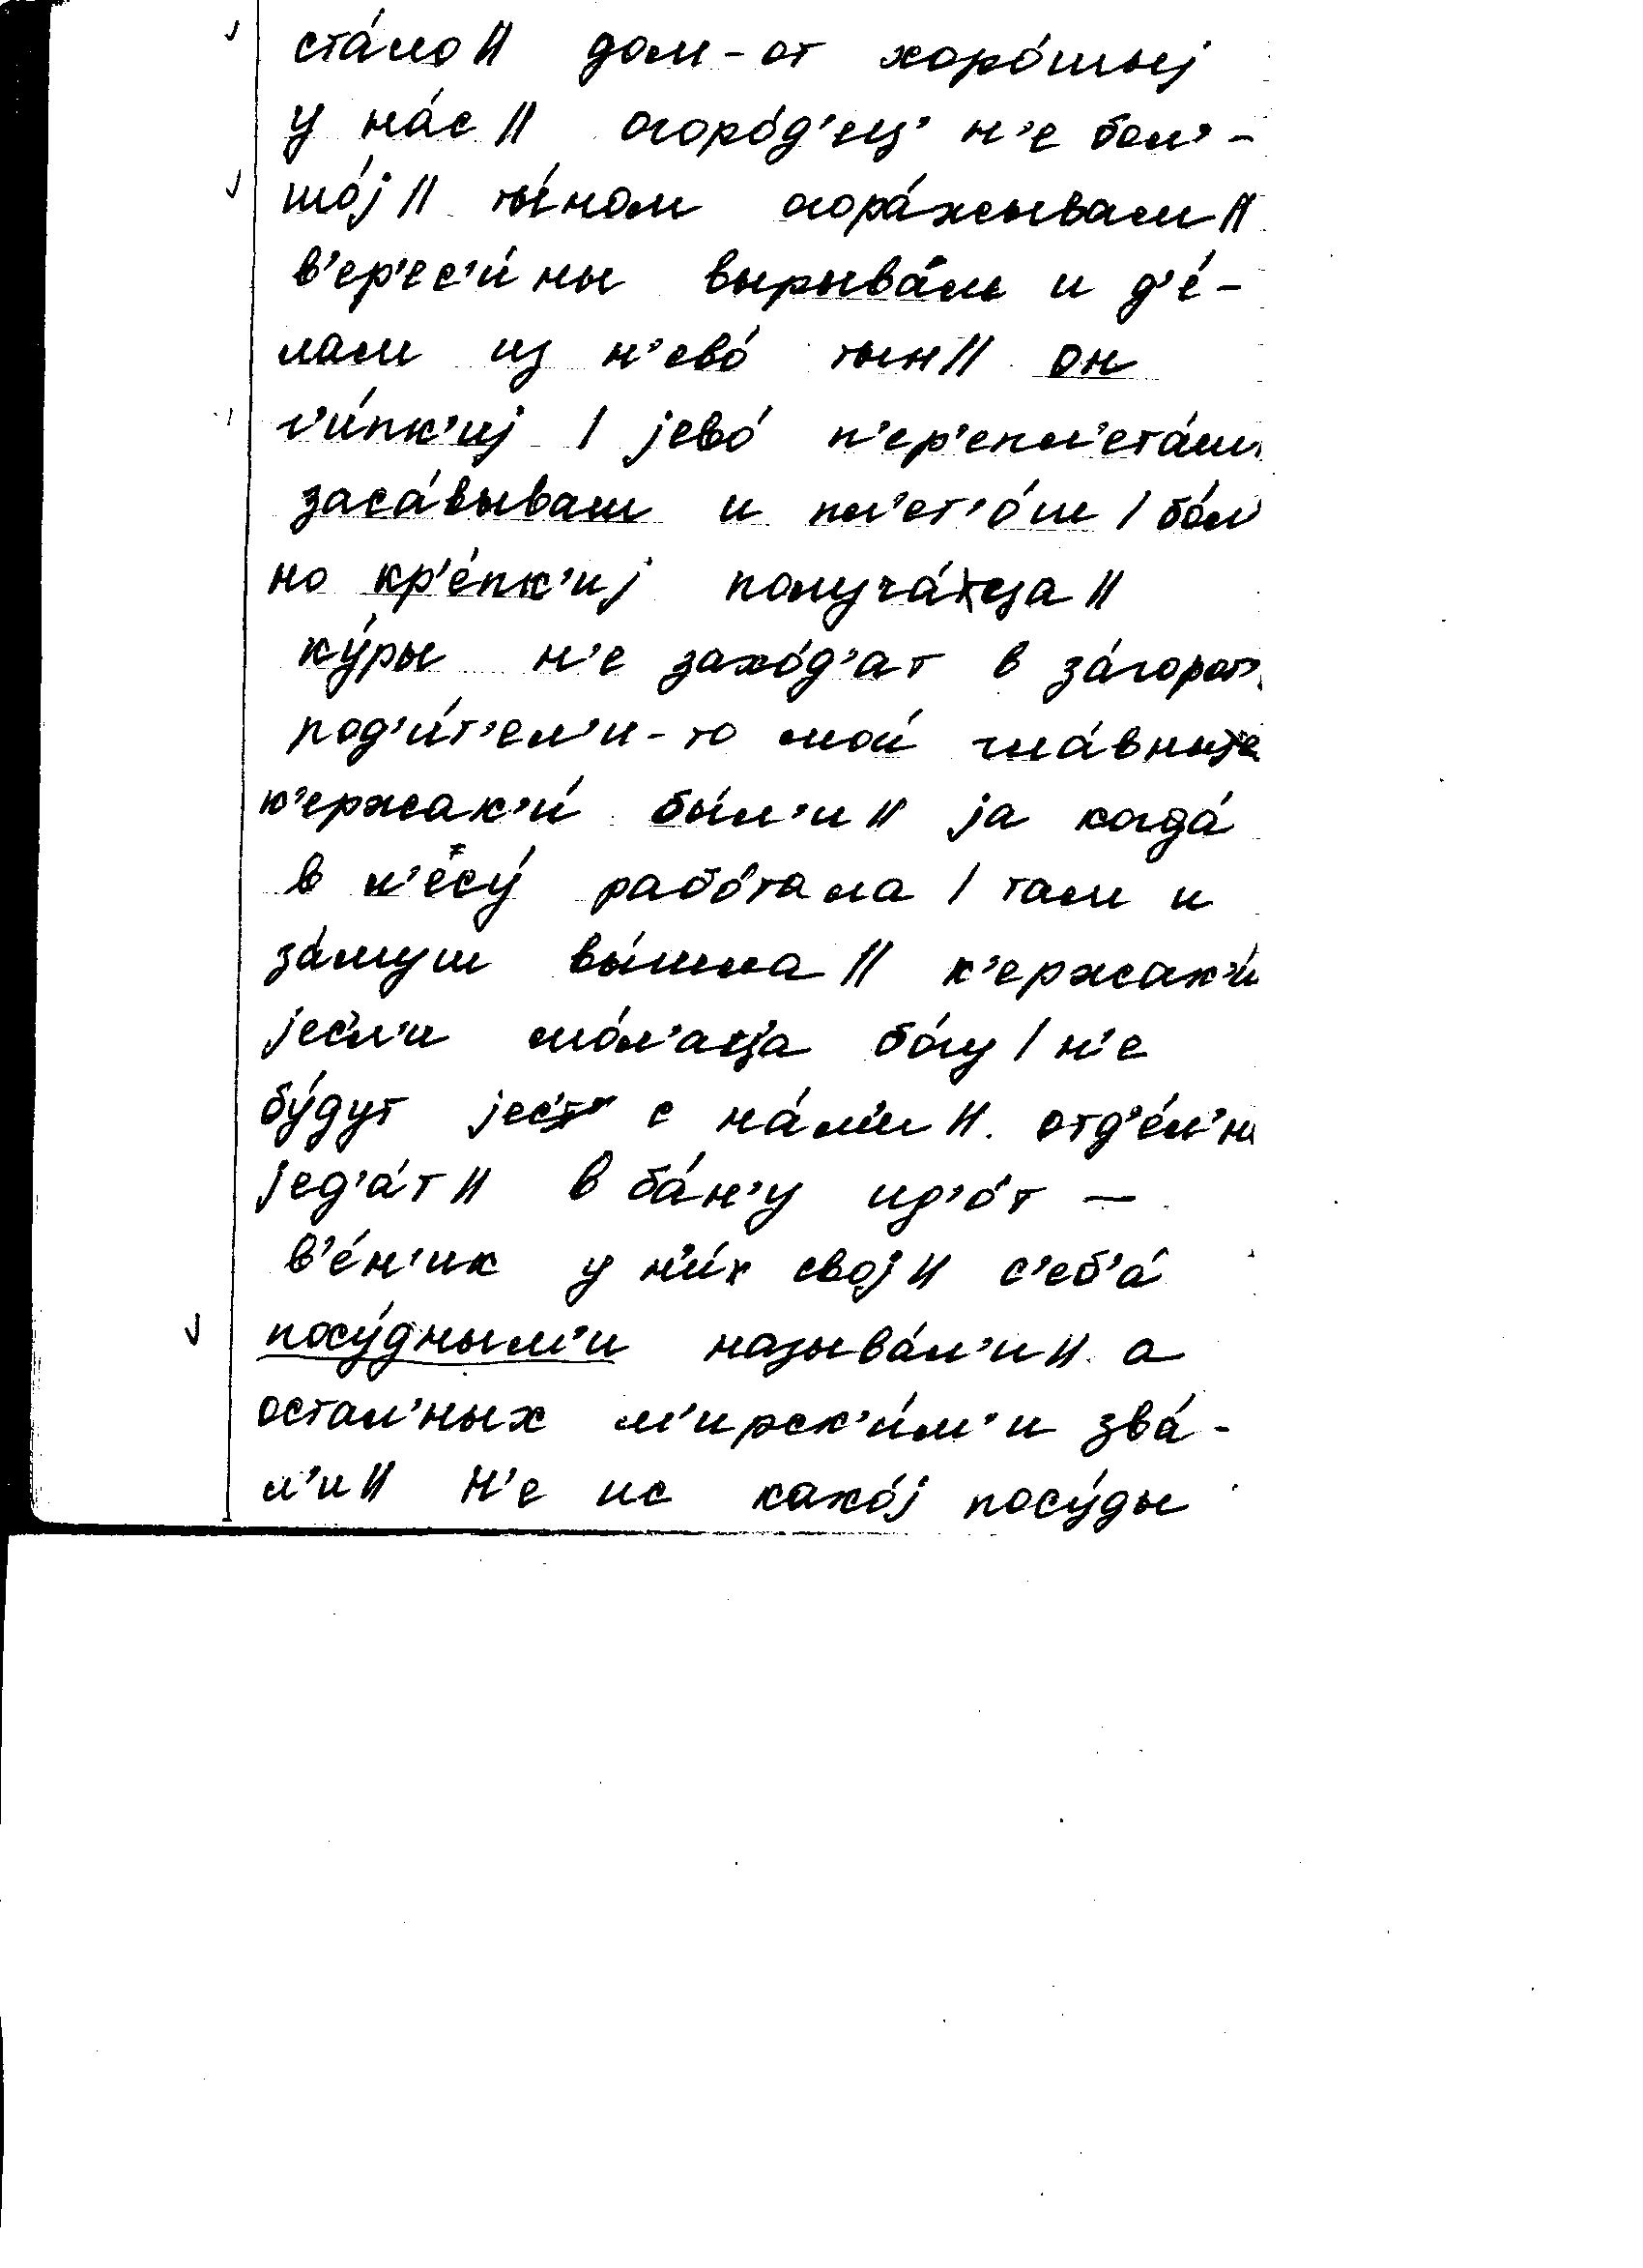 ста́ло// дом-от хоро́шыj
у на́с // огоро́д'ец' н'е бол'-
шо́j// ты́ном огора́жывам//
в'ер'ес'и́ны вырыва́м и д'е́-
лам из н'ево́ тын// он
г'и́пк'иj / jево́ п'ер'епл'ета́м
заса́вывам и пл'ет'о́ш / бо́л'
но кр'е́пк'иj получа́ца //
ку́ры н'е захо́д'ат в за́город
род'и́т'ел'и-то мои́ гла́вныjе
к'ержак'и́ бы́л'и// jа когда́
в л'есу́ рабо́тала / там и
за́муш вы́шла // к'ержак'и́
jе́сл'и мо́л'аца бо́гу / н'е
бу́дут jес'т' с на́м'и//. отд'е́л'но
jед'а́т// в ба́н'у ид'о́т —
в'е́н'ик у н'и́х своj// с'еб'а́
посу́дным'и называ́л'и//. а
остал'ных м'ирск'и́м'и зва́-
л'и// Н'е ис како́j посу́ды